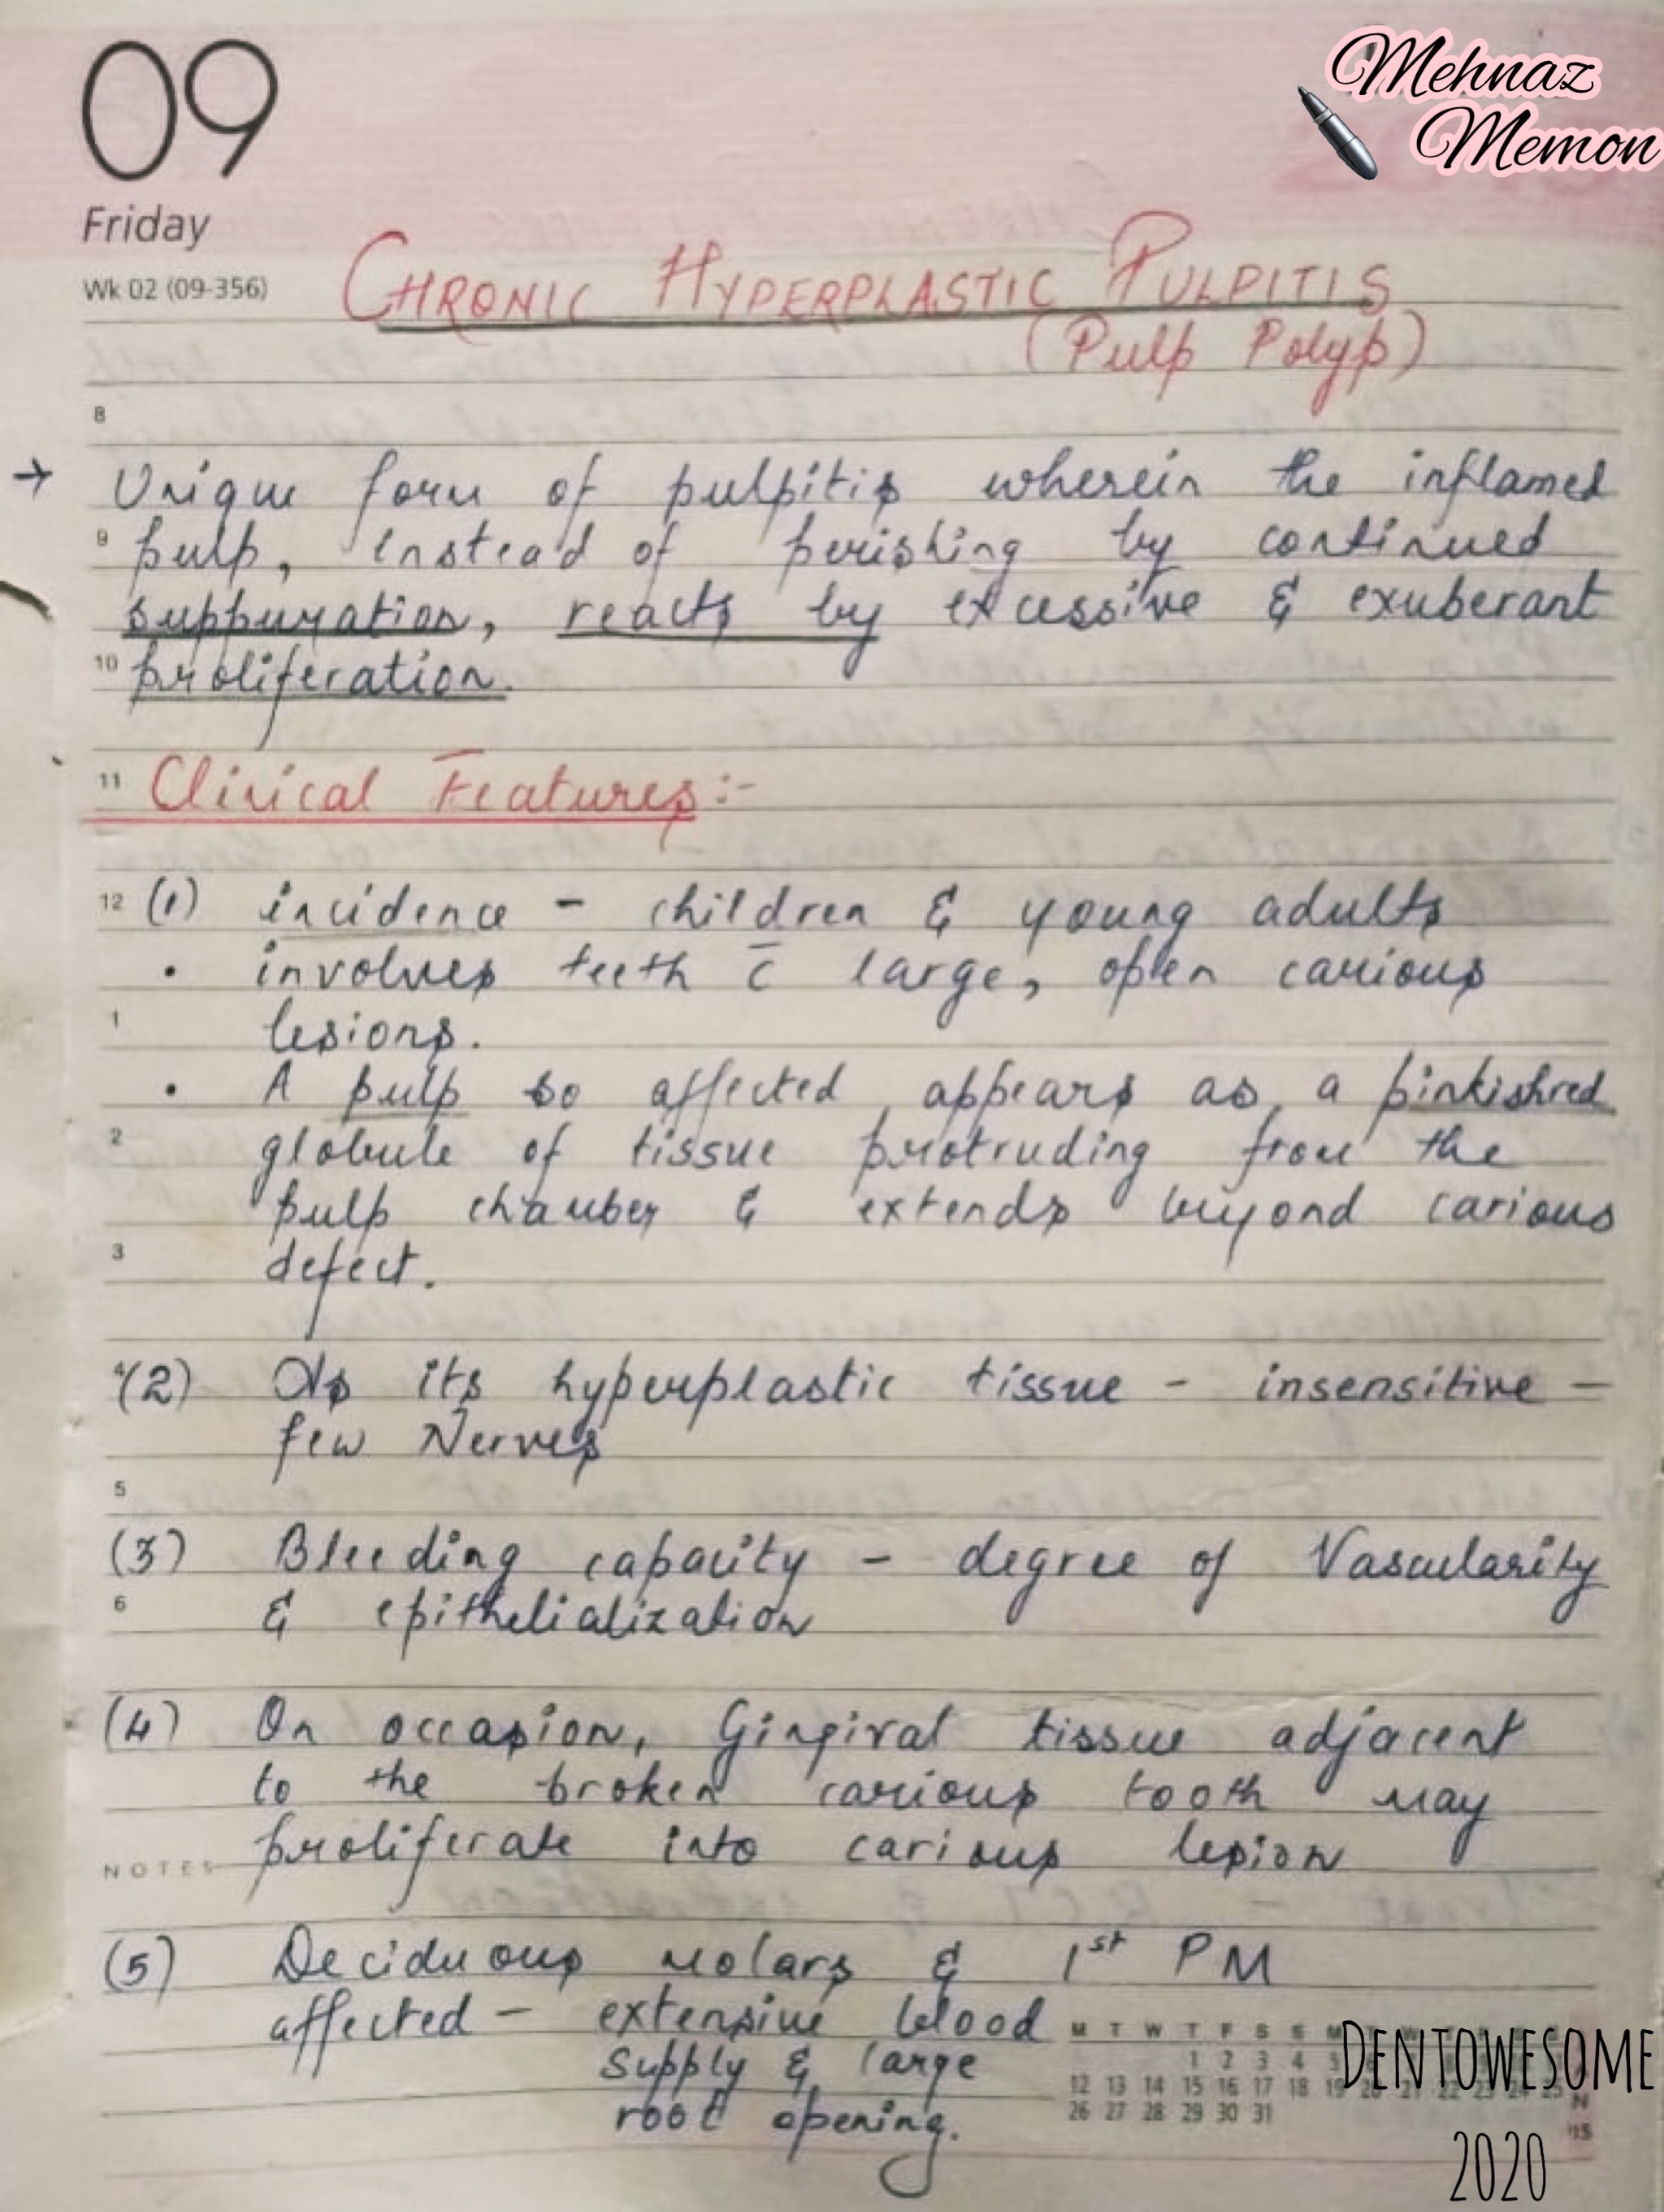 09
Mehnaz
Memon
Friday
Wk 02 (09-356)
CHRONIC HYPERPLASTIC PULPITIS
(Pulp Polyp)
8
→ Unique form of pulpitis wherein the inflamed
9 pulp, instead of perishing by continued
suppuration, reacts by excessive & exuberant
10 proliferation.
11 Clinical Features:-
12 (1) incidence - children & young adults
• involves teeth c̄ large, open carious
1 lesions.
• A pulp so affected, appears as, a pinkish red
2 globule of tissue protruding from the
pulp chamber & extends beyond carious
3 defect.
4 (2) As its hyperplastic tissue - insensitive -
few Nerves
5
(3) Bleeding capacity - degree of Vascularity
6 & epithelialization
(4) On occasion, Gingival tissue adjacent
to the broken carious tooth may
NOTES proliferate into carious lesion
(5) Deciduous molars & 1st PM
affected - extensive blood
supply & large
root opening.
M T W T F S S M
1 2 3 4 5
12 13 14 15 16 17 18 19 20 21 22 23 24 25
26 27 28 29 30 31
'15
DENTOWESOME
2020